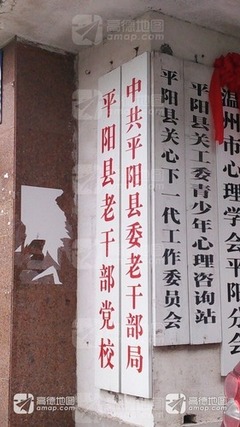 中共平阳县委老干部局
平阳县老干部党校
平阳县关心下一代工作委员会
平阳县关工委青少年心理咨询站
温州市心理学会平阳分会
高德地图
amap.com
高德地图
amap.com
高德地图
amap.com
高德地图
amap.com